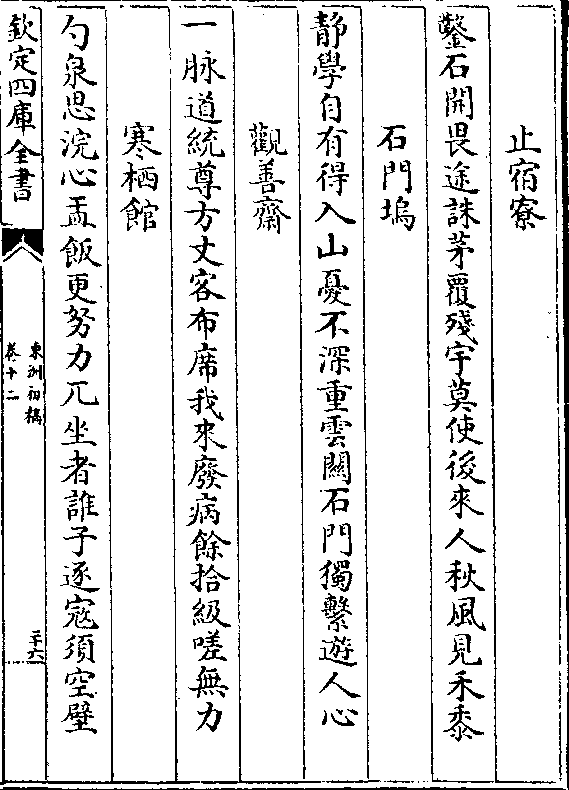 止宿寮
鑿石開畏途誅茅覆殘宇莫使後來人秋風見禾黍
石門塢
靜學自有得入山憂不深重雲關石門獨繫遊人心
觀善齋
一脉道統尊方丈客布席我來廢病餘拾級嗟無力
寒栖館
勺泉思浣心盂飯更努力兀坐者誰子逐寇須空壁
欽定四庫全書
東洲初稿
卷十二
二十六